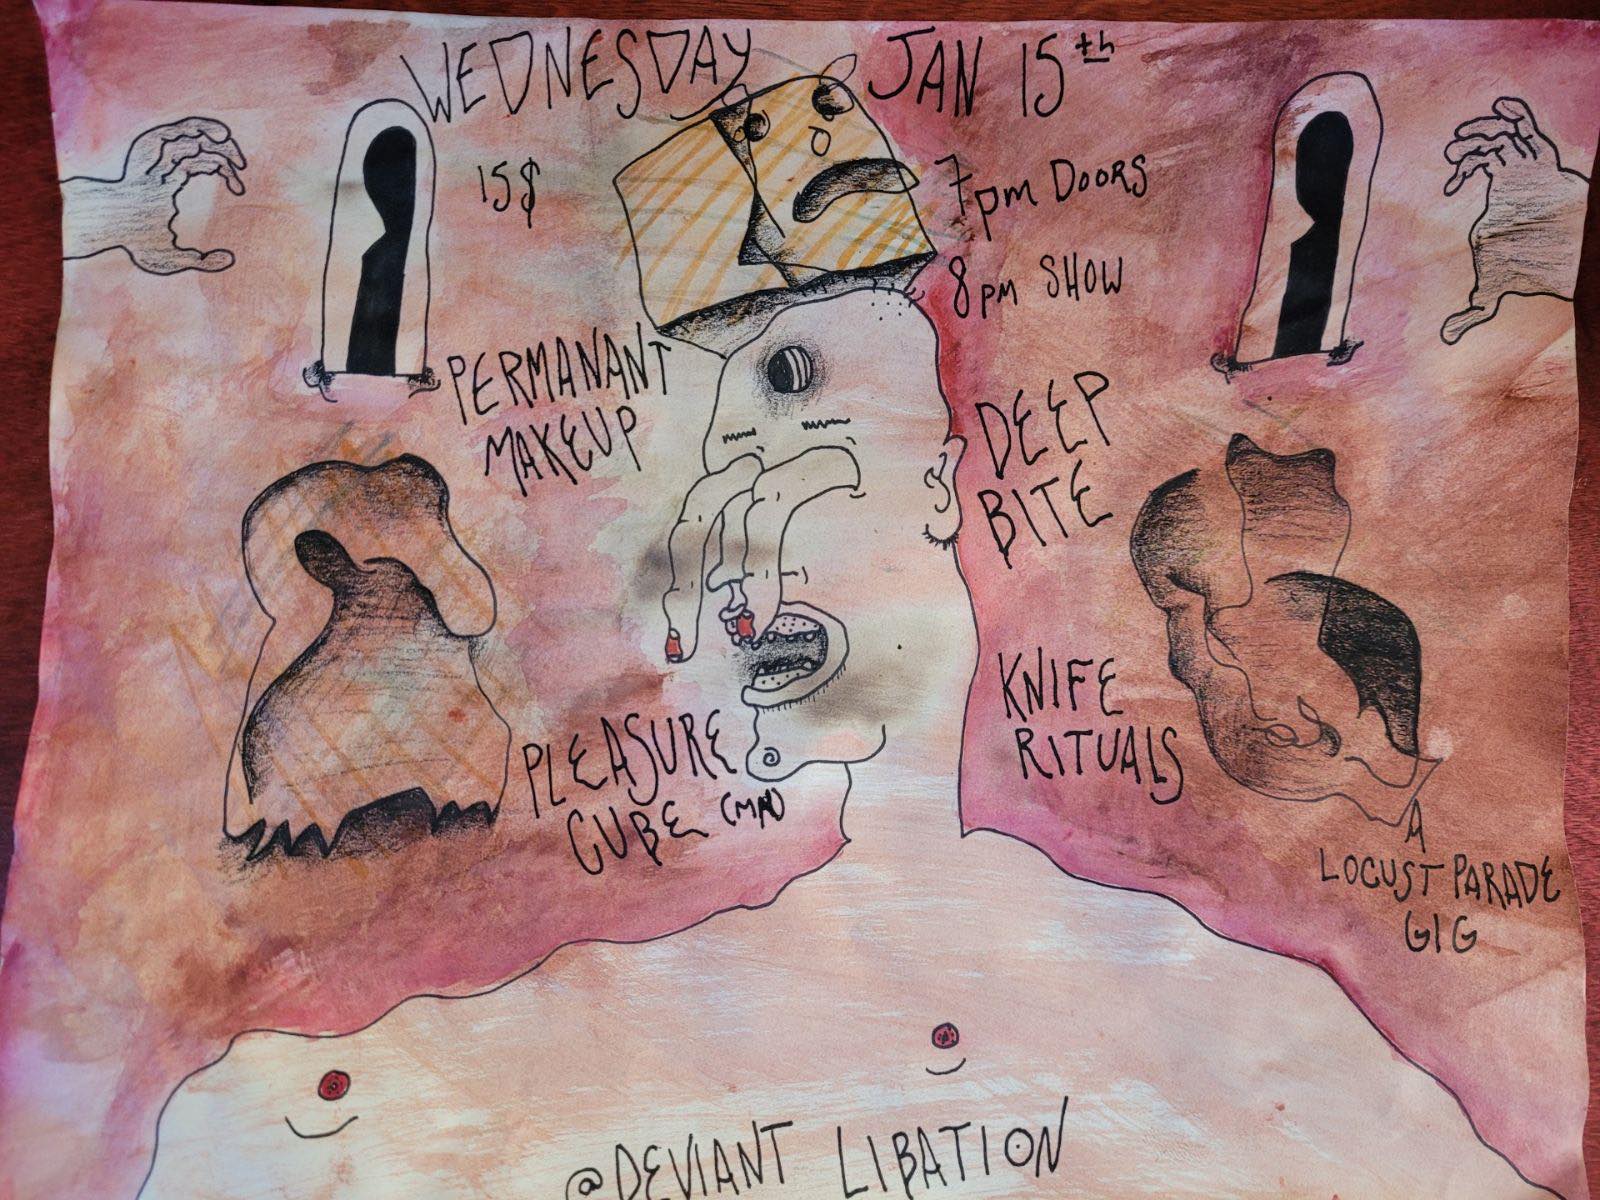 WEDNESDAY JAN 15th
15$
7pm DOORS
8pm SHOW
PERMANANT
MAKEUP
DEEP
BITE
PLEASURE
CUBE
KNIFE
RITUALS
A
LOCUST PARADE
GIG
@DEVIANT LIBATION